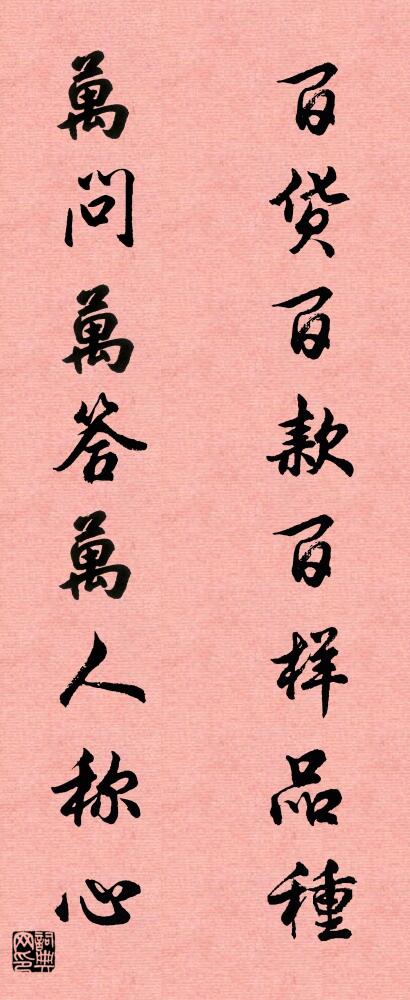 百货百款百样品種
萬問萬答萬人称心
詞典网印